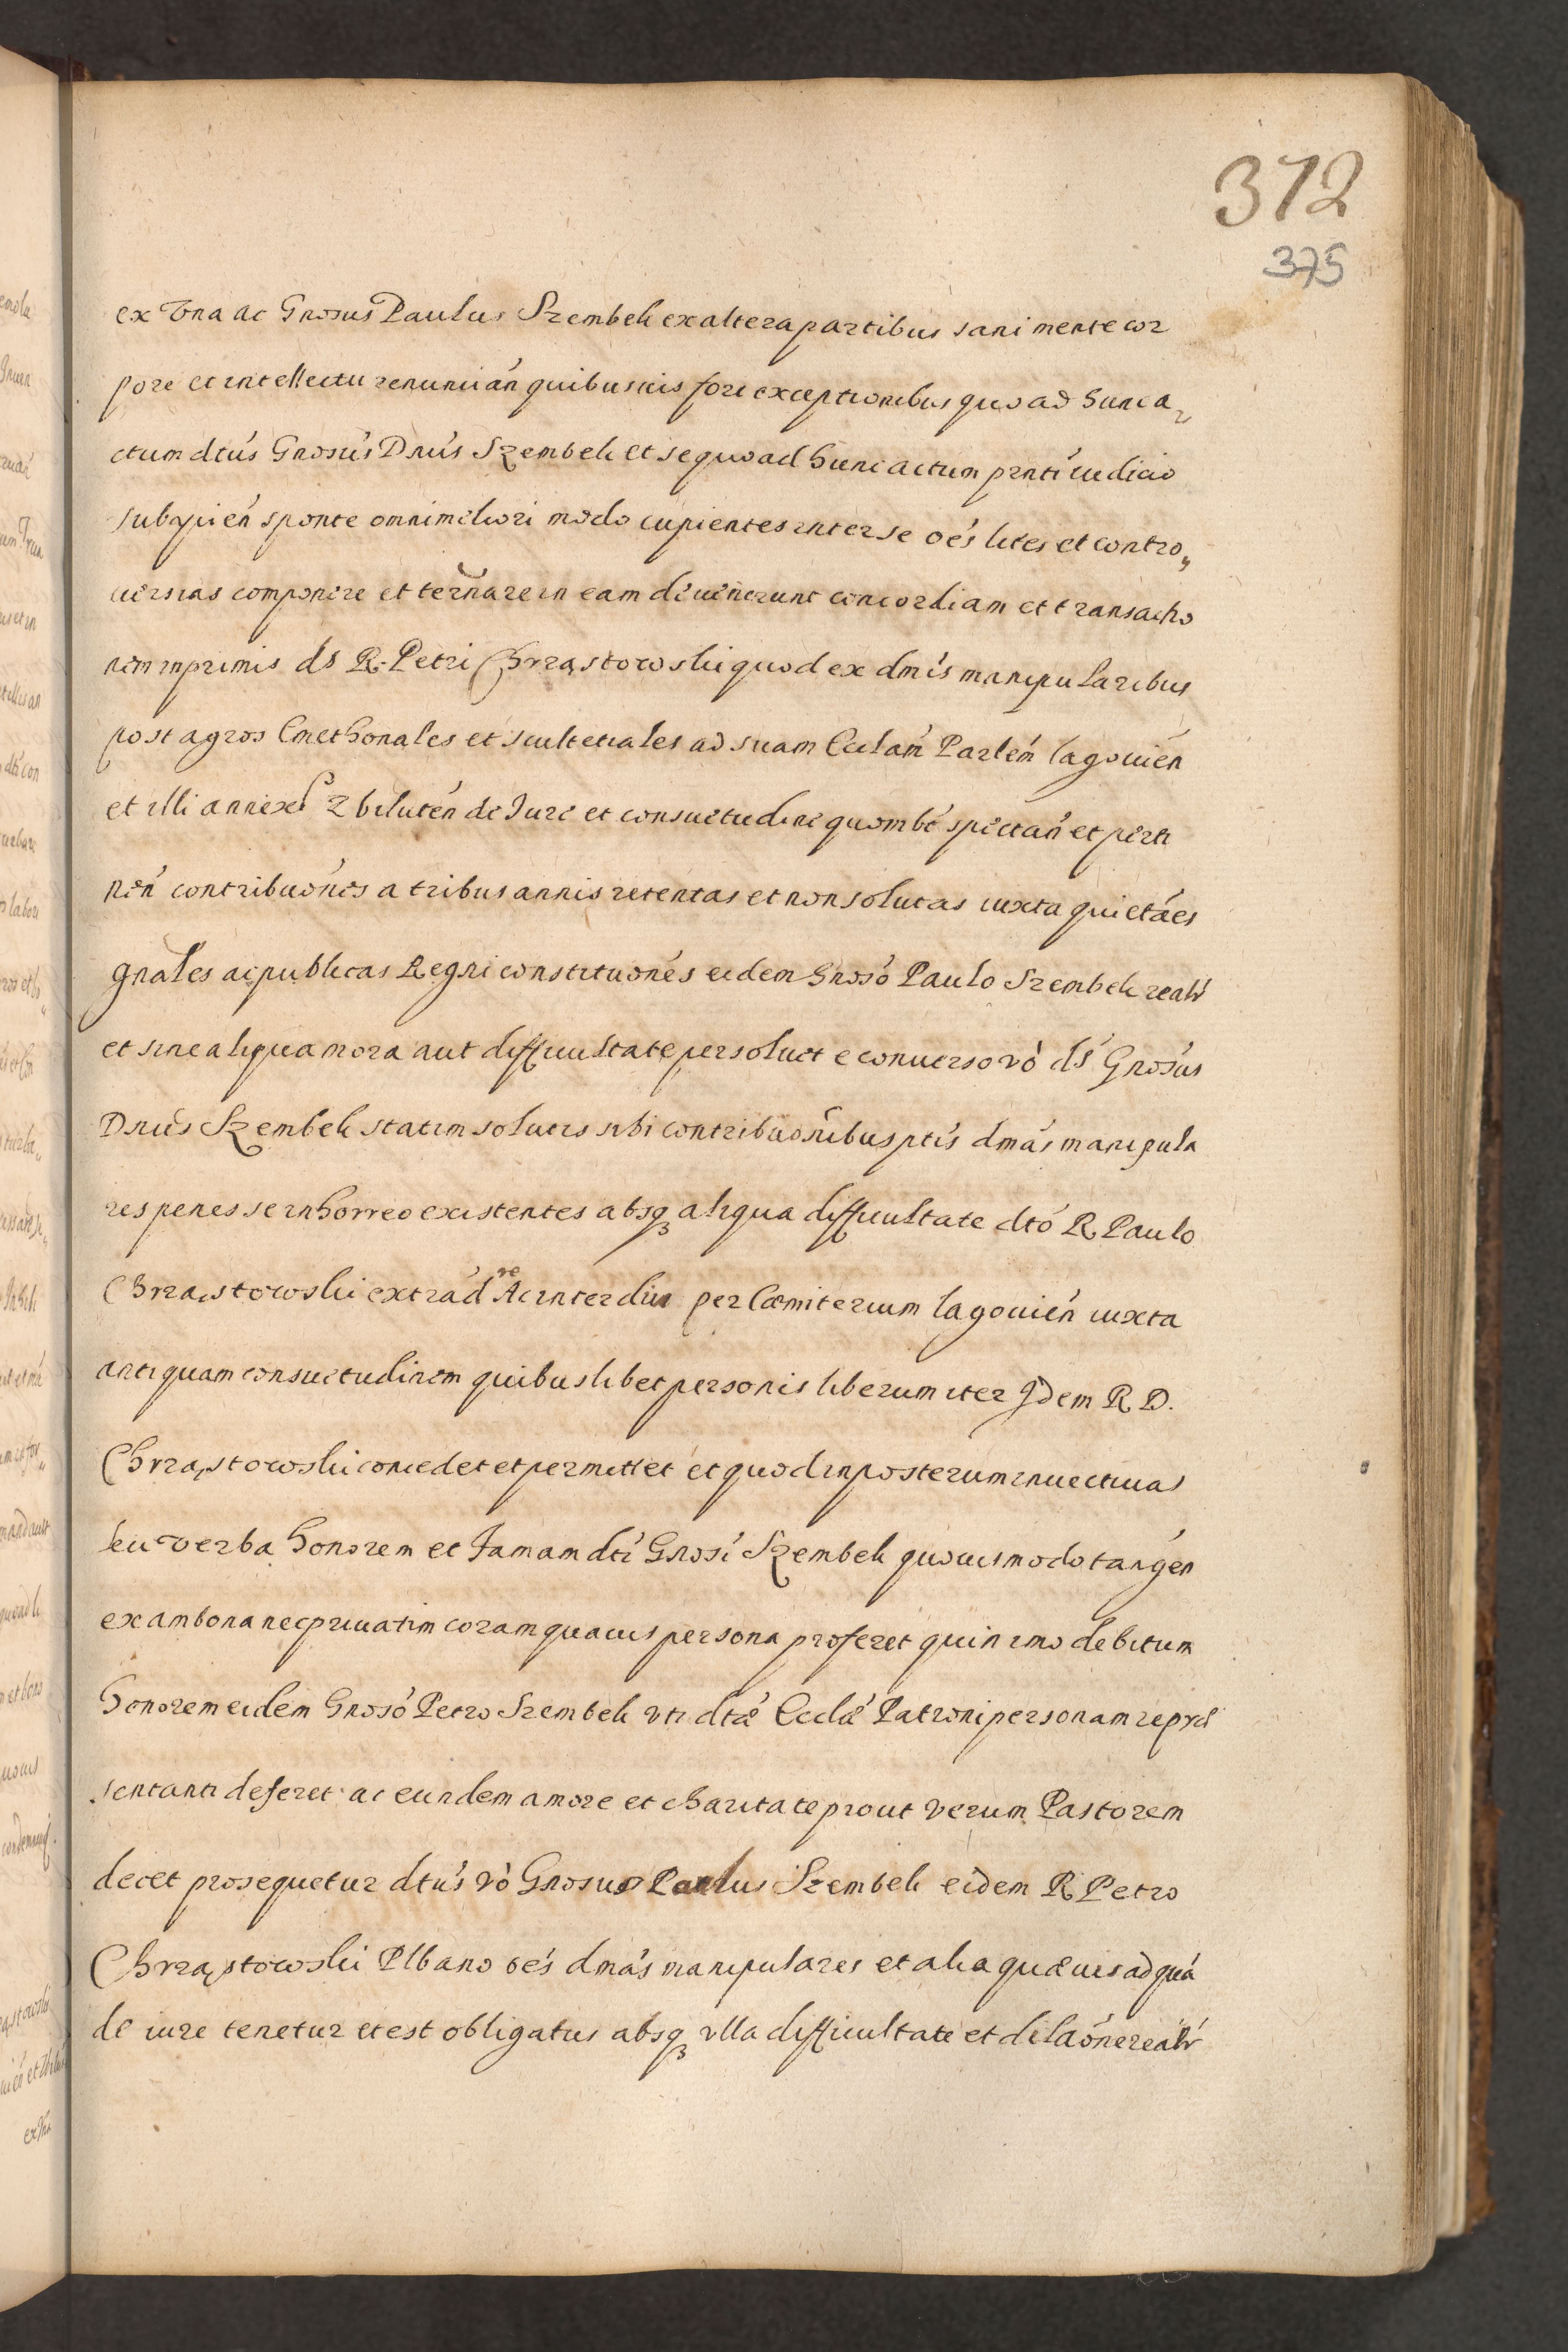 372
375
ex Vna ac Gnosus Paulus Szembek ex altera partibus sani mente cor
pore et intellectu renuncián quibusuis fori exceptionibus quo ad hunc a„
ctum dtús Gnosús Dnús Szembek et se quo ad hunc actum pnti iudicio
subycién sponte omni meliori modo cupientes inter se oés lites et contro„
uersias componere et termare in eam deuenerunt concordiam et transactio
nem inprimis ds R. Petri Chrząstowski quod ex dmis manipularibus
post agros Cmethonales et scultetiales ad suam Ecclám Parlem Lagouién
et illi annexá Zbilutén de Jure et consuetudine quombt spectán et perti
nén contribuónes a tribus annis retentas et non solutas iuxta quietáes
gnales ac publicas Regni constituónes eidem Gnosó Paulo Szembek realr
et sine aliqua mora aut difficultate persoluet e conuerso vò ds Gnosús
Dnús Szembek statim solutis sibi contribuónibus ptis dmás manipula
res penes se in horreo existentes absq aliqua difficultate dtó R Paulo
Chrząstowski extrád re Ac interdiu per Cæmiterium Lagouién iuxta
antiquam consuetudinem quibuslibet personis liberum iter Idem R D.
Chrząstowski concedet et permittet et quod in posterum inuectiuas
seu verba honorem et Famam dti Gnosi Szembek quouismodo tangén
ex ambona nec priuatim coram quauis persona proferet quin imo debitum
honorem eidem Gnosó Petro Szembek vti dtæ Eccliæ Patroni personam repræ
sentanti deferet ac eundem amore et charitate prout verum Pastorem
decet prosequetur dtús vò Gnosus Paulus Szembek eidem R Petro
Chrząstowski Plbano oés dmás manipulares et alia quæuis ad quá
de iure tenetur et est obligatus absq vlla difficultate et delaóne realr